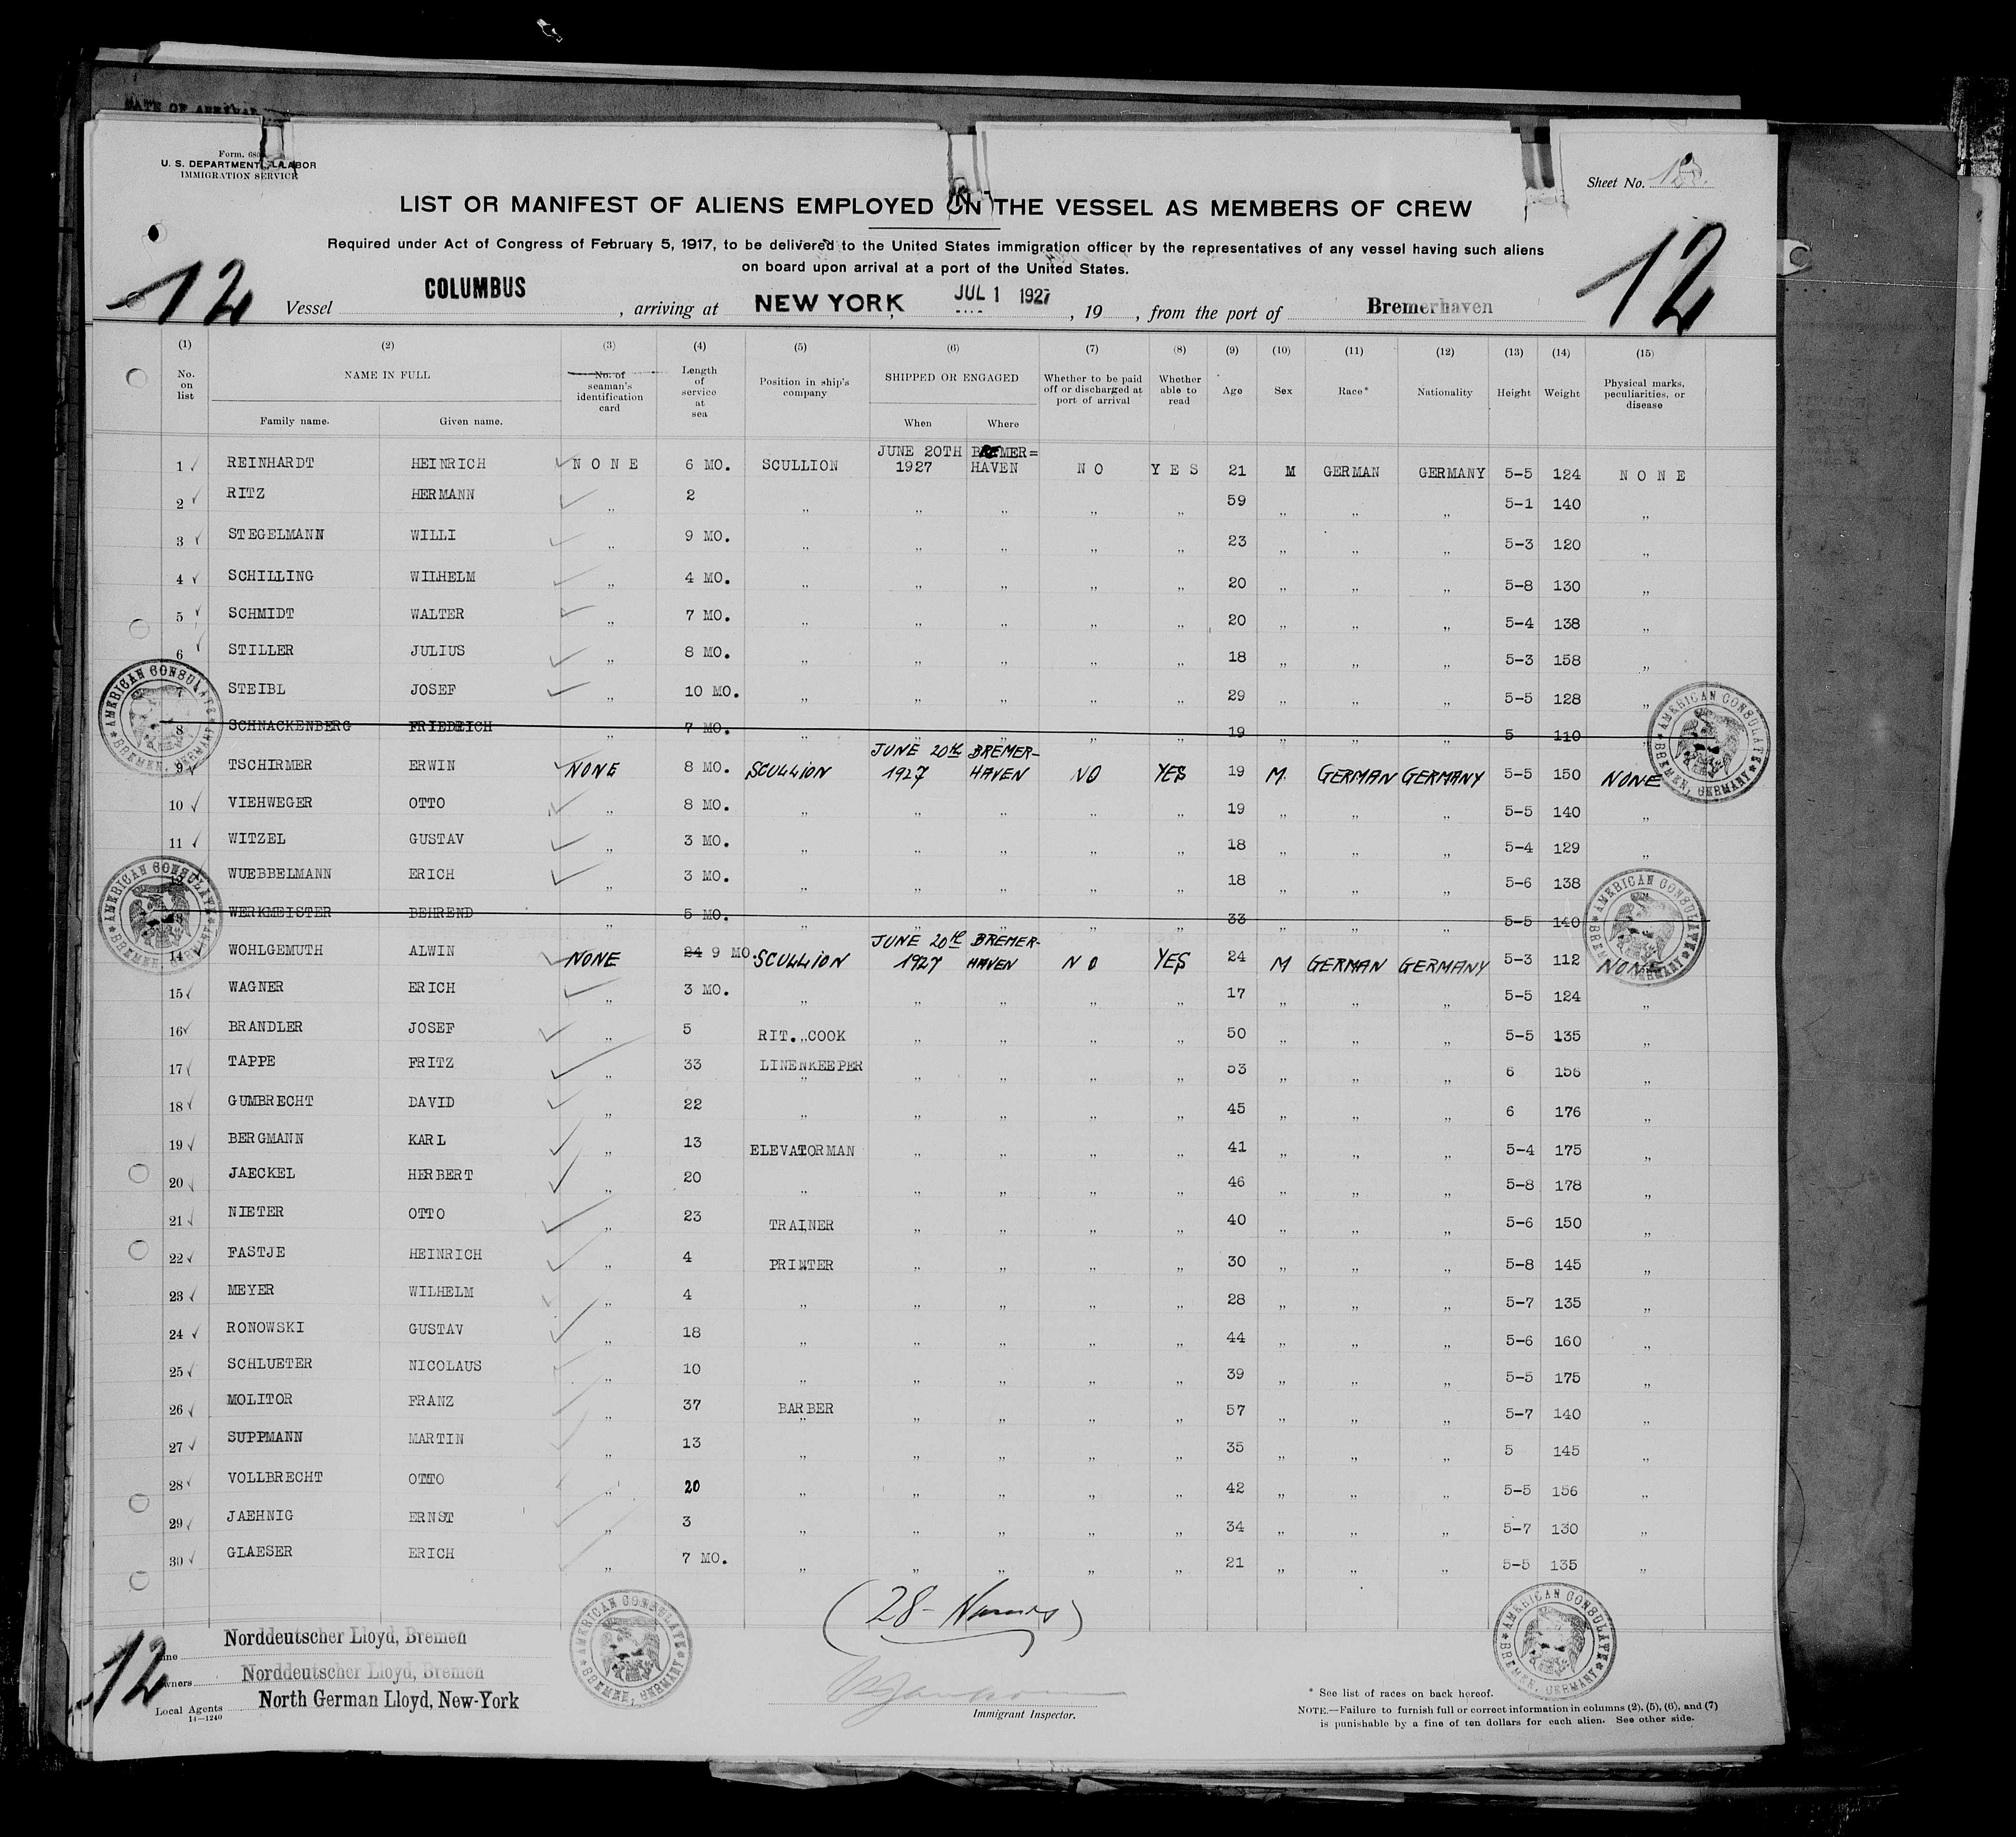 DATE OF ARRIVAL
Form. 680
U. S. DEPARTMENT LABOR
IMMIGRATION SERVICE
Sheet No.
LIST OR MANIFEST OF ALIENS EMPLOYED ON THE VESSEL AS MEMBERS OF CREW
Required under Act of Congress of February 5, 1917, to be delivered to the United States immigration officer by the representatives of any vessel having such aliens
on board upon arrival at a port of the United States.
12 Vessel COLUMBUS , arriving at NEW YORK, JUL 1 1927 , 19 , from the port of Bremerhaven 12
(1) (2) (3) (4) (5) (6) (7) (8) (9) (10) (11) (12) (13) (14) (15)
No. on list NAME IN FULL Family name. Given name. No. of seaman's identification card Length of service at sea Position in ship's company SHIPPED OR ENGAGED When Where Whether to be paid off or discharged at port of arrival Whether able to read Age Sex Race* Nationality Height Weight Physical marks, peculiarities, or disease
JUNE 20TH BREMER=
1 REINHARDT HEINRICH NONE 6 MO. SCULLION 1927 HAVEN NO YES 21 M GERMAN GERMANY 5-5 124 NONE
2 RITZ HERMANN " 2 " " " " " 59 " " " 5-1 140 "
3 STEGELMANN WILLI " 9 MO. " " " " " 23 " " " 5-3 120 "
4 SCHILLING WILHELM " 4 MO. " " " " " 20 " " " 5-8 130 "
5 SCHMIDT WALTER " 7 MO. " " " " " 20 " " " 5-4 138 "
6 STILLER JULIUS " 8 MO. " " " " " 18 " " " 5-3 158 "
7 STEIBL JOSEF " 10 MO. " " " " " 29 " " " 5-5 128 "
8 SCHNACKENBERG FRIEDRICH " 7 MO. " " " " " 19 " " " 5 110 "
JUNE 20th BREMER-
9 TSCHIRMER ERWIN NONE 8 MO. SCULLION 1927 HAVEN NO YES 19 M. GERMAN GERMANY 5-5 150 NONE
10 VIEHWEGER OTTO " 8 MO. " " " " " 19 " " " 5-5 140 "
11 WITZEL GUSTAV " 3 MO. " " " " " 18 " " " 5-4 129 "
12 WUEBBELMANN ERICH " 3 MO. " " " " " 18 " " " 5-6 138 "
13 WERKMEISTER BEHREND " 5 MO. " " " " " 33 " " " 5-5 140 "
JUNE 20th BREMER-
14 WOHLGEMUTH ALWIN NONE 24 9 MO. SCULLION 1927 HAVEN NO YES 24 M GERMAN GERMANY 5-3 112 NONE
15 WAGNER ERICH " 3 MO. " " " " " 17 " " " 5-5 124 "
16 BRANDLER JOSEF " 5 RIT. COOK " " " " 50 " " " 5-5 135 "
17 TAPPE FRITZ " 33 LINENKEEPER " " " " 53 " " " 6 156 "
18 GUMBRECHT DAVID " 22 " " " " " 45 " " " 6 176 "
19 BERGMANN KARL " 13 ELEVATORMAN " " " " 41 " " " 5-4 175 "
20 JAECKEL HERBERT " 20 " " " " " 46 " " " 5-8 178 "
21 NIETER OTTO " 23 TRAINER " " " " 40 " " " 5-6 150 "
22 FASTJE HEINRICH " 4 PRINTER " " " " 30 " " " 5-8 145 "
23 MEYER WILHELM " 4 " " " " " 28 " " " 5-7 135 "
24 RONOWSKI GUSTAV " 18 " " " " " 44 " " " 5-6 160 "
25 SCHLUETER NICOLAUS " 10 " " " " " 39 " " " 5-5 175 "
26 MOLITOR FRANZ " 37 BARBER " " " " 57 " " " 5-7 140 "
27 SUPPMANN MARTIN " 13 " " " " " 35 " " " 5 145 "
28 VOLLBRECHT OTTO " 20 " " " " " 42 " " " 5-5 156 "
29 JAEHNIG ERNST " 3 " " " " " 34 " " " 5-7 130 "
30 GLAESER ERICH " 7 MO. " " " " " 21 " " " 5-5 135 "
AMERICAN CONSULATE BREMEN, GERMANY
AMERICAN CONSULATE BREMEN, GERMANY
AMERICAN CONSULATE BREMEN, GERMANY
AMERICAN CONSULATE BREMEN, GERMANY
AMERICAN CONSULATE BREMEN, GERMANY
AMERICAN CONSULATE BREMEN, GERMANY
(28 - Names)
12
Norddeutscher Lloyd, Bremen
Norddeutscher Lloyd, Bremen
Local Agents North German Lloyd, New-York
14—1240
Immigrant Inspector.
* See list of races on back hereof.
NOTE.—Failure to furnish full or correct information in columns (2), (5), (6), and (7)
is punishable by a fine of ten dollars for each alien. See other side.